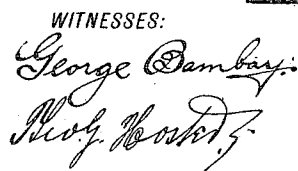 WITNESSES:
George Bambay.
Theo. G. Hoster